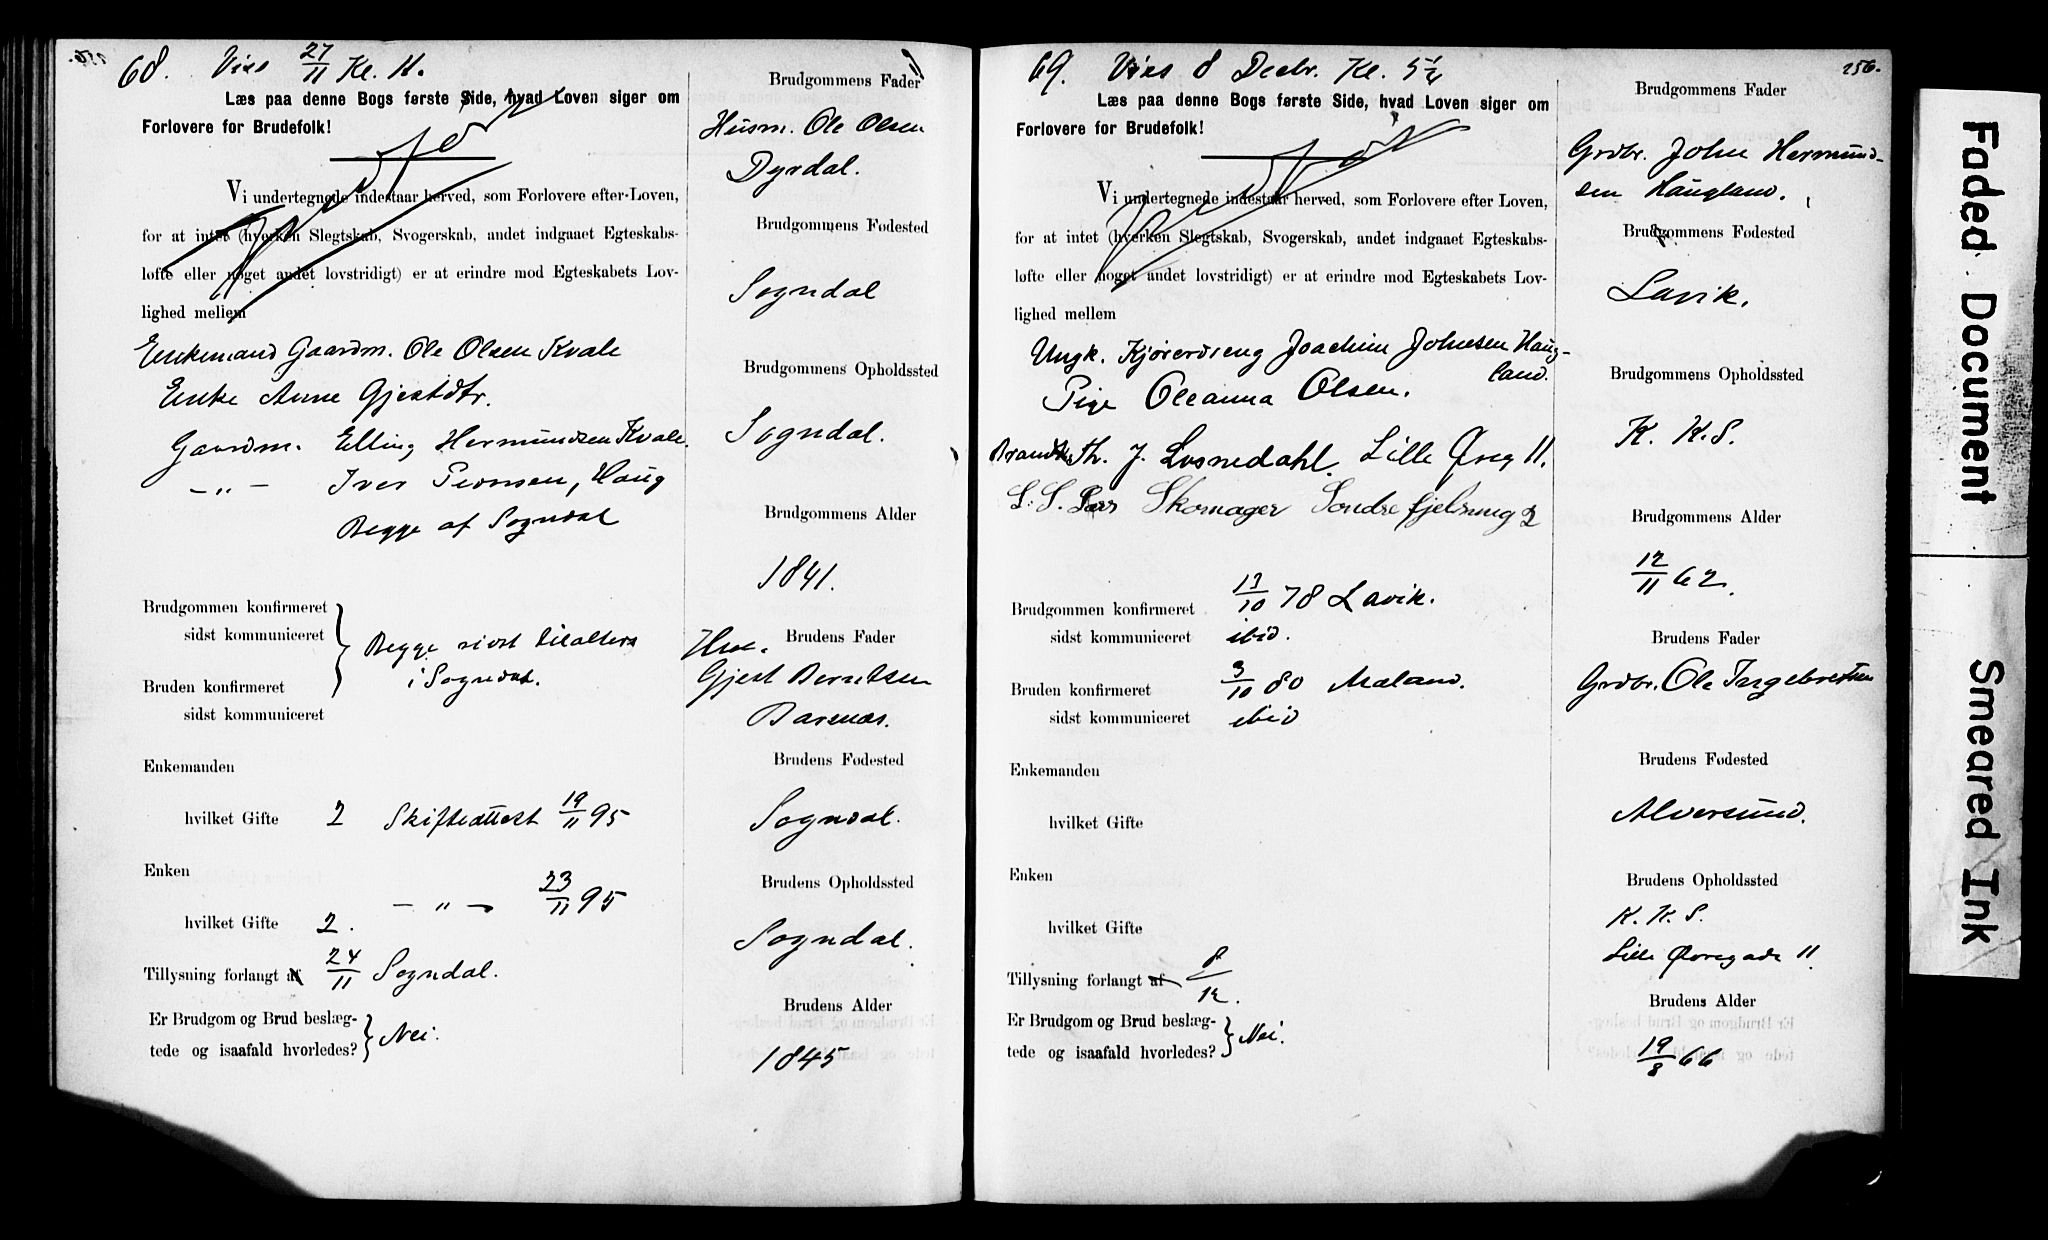 68. Vies 27/11 Kl. 11.
Læs paa denne Bogs første Side, hvad Loven siger om
Forlovere for Brudefolk!
Vi undertegnede indestaar herved, som Forlovere efter Loven,
for at intet (hverken Slegtskab, Svogerskab, andet indgaaet Egteskabs-
løfte eller noget andet lovstridigt) er at erindre mod Egteskabets Lov-
lighed mellem
Enkemand Gaardm. Ole Olsen Kvale
Enke Anne Gjestdtr.
Gaardm. Elling Hermundsen Kvale.
— " — Iver Iversen, Haug
Begge af Sogndal
Brudgommen konfirmeret
sidst kommuniceret
Begge sidst tilalters
i Sogndal.
Bruden konfirmeret
sidst kommuniceret
Enkemanden
hvilket Gifte 2 Skifteattest 19/11 95
Enken
— " — 23/11 95
hvilket Gifte 2.
Tillysning forlangt af 24/11 Sogndal.
Er Brudgom og Brud beslæg-
tede og isaafald hvorledes? } Nei.
Brudgommens Fader
Husm. Ole Olsen
Dyrdal.
Brudgommens Fødested
Sogndal
Brudgommens Opholdssted
Sogndal.
Brudgommens Alder
1841.
Brudens Fader
Gjest Berntsen
Brudens Fødested
Sogndal.
Brudens Opholdssted
Sogndal.
Brudens Alder
1845
69. Vies 8 Decbr. Kl. 5 1/4
256.
Læs paa denne Bogs første Side, hvad Loven siger om
Forlovere for Brudefolk!
Vi undertegnede indestaar herved, som Forlovere efter Loven,
for at intet (hverken Slegtskab, Svogerskab, andet indgaaet Egteskabs-
løfte eller noget andet lovstridigt) er at erindre mod Egteskabets Lov-
lighed mellem
Ungk. Kjøredreng Joachim Johnsen Haug-
land.
Pige Oleanna Olsen.
Th. J. Losnedahl. Lille Øvreg 11.
L. S. Skomager Søndre
Brudgommen konfirmeret 13/10 78 Lavik.
sidst kommuniceret ibid.
Bruden konfirmeret 3/10 80 Mæland.
sidst kommuniceret ibid
Enkemanden
hvilket Gifte
Enken
hvilket Gifte
Tillysning forlangt af 8/12.
Er Brudgom og Brud beslæg-
tede og isaafald hvorledes? } Nei.
Brudgommens Fader
Grdbr. John Hermund-
sen Haugland.
Brudgommens Fødested
Lavik.
Brudgommens Opholdssted
K. K. S.
Brudgommens Alder
12/11 62.
Brudens Fader
Grdbr. Ole Ingebretsen
Brudens Fødested
Alversund.
Brudens Opholdssted
K. K. S.
Lille Øvregade 11.
Brudens Alder
19/8 66
Faded Document
Smeared Ink